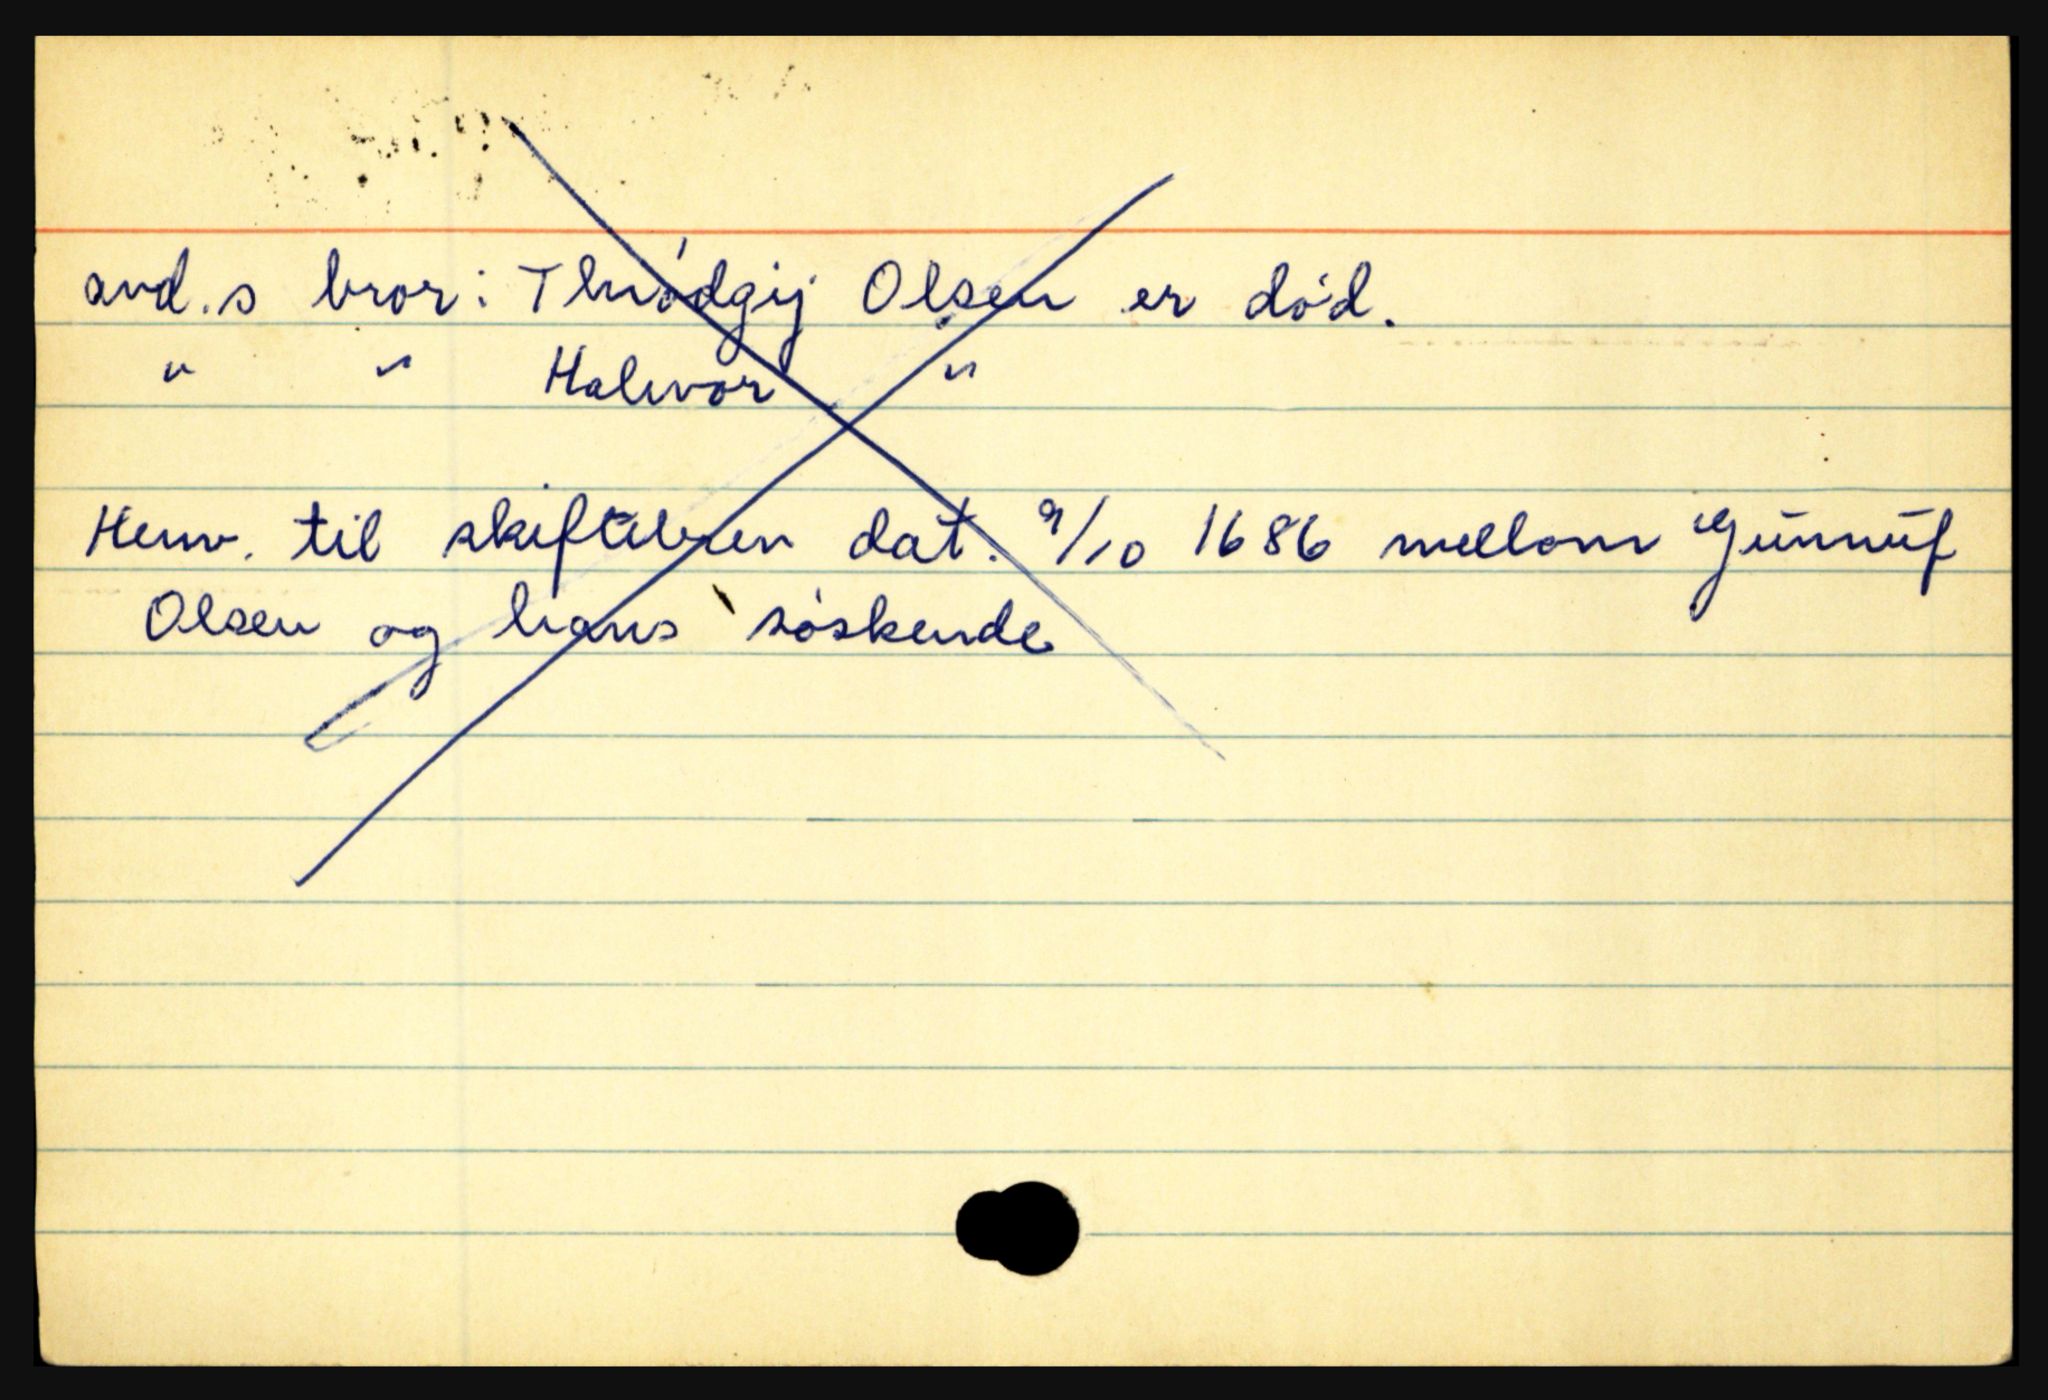 avd.s bror: Thródgij Olsen er död.
" " Halvor "
Henv. til skiftebrev dat. 9/10 1686 mellom Gunnuf
Olsen og hans söskende